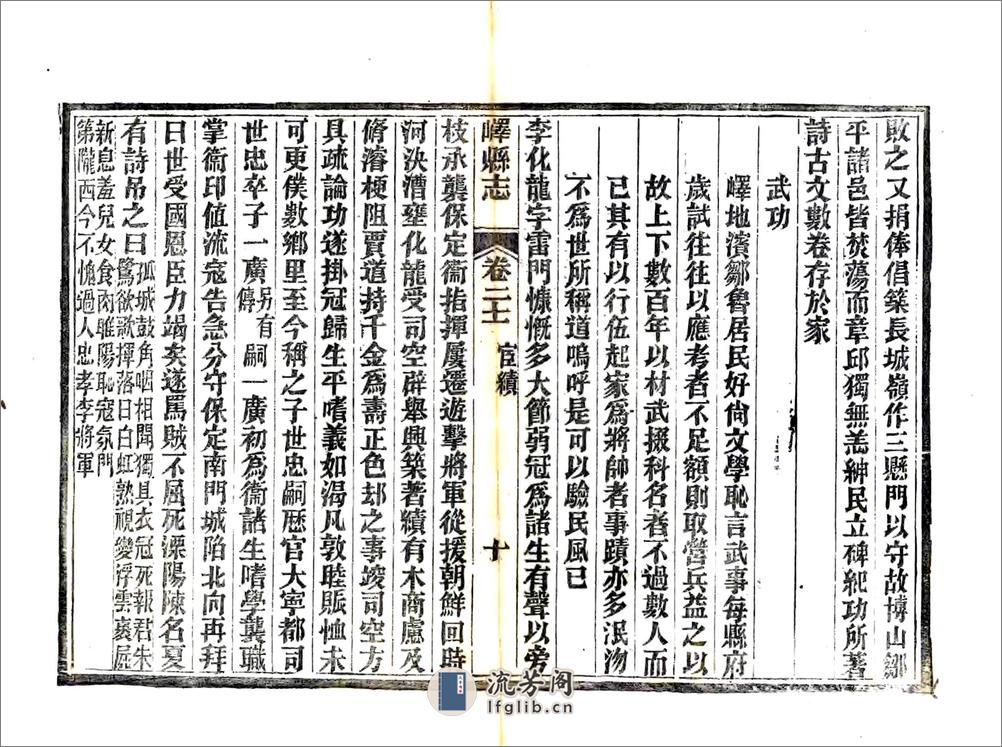 敗之又捐俸倡築長城嶺作三懸門以守故博山鄒
平諸邑皆焚蕩而章邱獨無恙紳民立碑紀功所著
詩古文數卷存於家
武功
嶧地濱鄒魯居民好尙文學恥言武事每縣府
歲試往往以應考者不足額則取營兵益之以
故上下數百年以材武掇科名者不過數人而
已其有以行伍起家為將帥者事蹟亦多泯沕
不為世所稱道嗚呼是可以驗民風已
李化龍字雷門慷慨多大節弱冠為諸生有聲以旁
嶧縣志 卷二十一 宦績 十
枝承襲保定衞指揮屢遷遊擊將軍從援朝鮮回時
河決漕壅化龍受司空辟舉興築著績有木商慮及
脩濬梗阻賈道持千金為壽正色却之事竣司空方
具疏論功遂掛冠歸生平嗜義如渴凡敦睦賑恤未
可更僕數鄉里至今稱之子世忠嗣歷官大寧都司
世忠卒子一廣另有傳嗣一廣初為衞諸生嗜學襲職
掌衞印値流寇告急分守保定南門城陷北向再拜
曰世受國恩臣力竭矣遂罵賊不屈死溧陽陳名夏
有詩吊之曰孤城鼓角咽相聞獨具衣冠死報君朱
驚欲歌揮落日白虹熟視變浮雲裹屍
新息羞兒女食肉睢陽恥寇氛門
第隴西今不愧過人忠孝李將軍
流芳阁
lfglib.cn